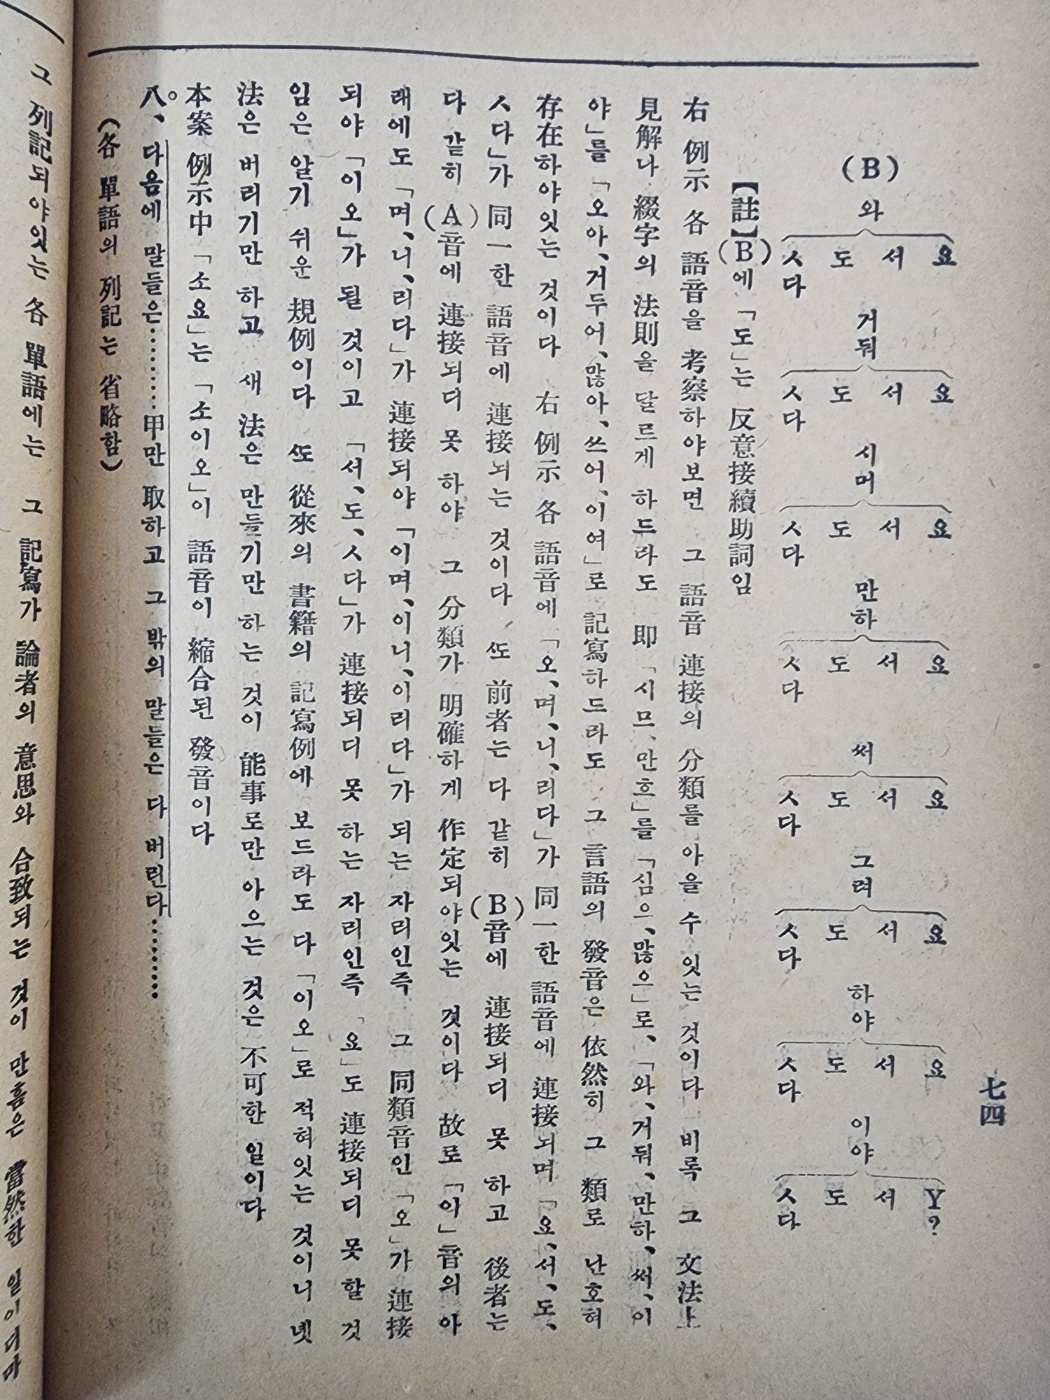 七四
(B)
와
요
서
도
ㅅ다
거둬
요
서
도
ㅅ다
시머
요
서
도
ㅅ다
만하
요
서
도
ㅅ다
써
요
서
도
ㅅ다
그려
요
서
도
ㅅ다
하야
요
서
도
ㅅ다
이야
Y?
서
도
ㅅ다
【註】(B)에 「도」는 反意接續助詞임
右 例示 各 語音을 考察하야보면 그 語音 連接의 分類를 아을 수 잇는 것이다 비록 그 文法上
見解나 綴字의 法則을 달르게 하드라도 即 「시므、만흐」를 「심으、많으」로、「와、거둬、만하、써、이
야」를 「오아、거두어、많아、쓰어、이여」로 記寫하드라도 그 言語의 發音은 依然히 그 類로 난호혀
存在하야잇는 것이다 右 例示 各 語音에 「오、며、니、리다」가 同一한 語音에 連接되며 「요、서、도、
ㅅ다」가 同一한 語音에 連接되는 것이다 ᄯᅩ 前者는 다 같히 (B)音에 連接되디 못 하고 後者는
다 같히 (A)音에 連接되디 못 하야 그 分類가 明確하게 作定되야잇는 것이다 故로 「이」音의 아
래에도 「며、니、리다」가 連接되야 「이며、이니、이리다」가 되는 자리인즉 그 同類音인 「오」가 連接
되야 「이오」가 될 것이고 「서、도、ㅅ다」가 連接되디 못 하는 자리인즉 「요」도 連接되디 못 할 것
임은 알기 쉬운 規例이다 ᄯᅩ 從來의 書籍의 記寫例에 보드라도 다 「이오」로 적혀잇는 것이니 녯
法은 버리기만 하고 새 法은 만들기만 하는 것이 能事로만 아으는 것은 不可한 일이다
本案 例示中 「소요」는 「소이오」이 語音이 縮合된 發音이다
八、다음에 말들은………甲만 取하고 그 밖의 말들은 다 버린다………
(各 單語의 列記는 省略함)
그 列記되야잇는 各 單語에는 그 記寫가 論者의 意思와 合致되는 것이 만흠은 當然한 일이디마